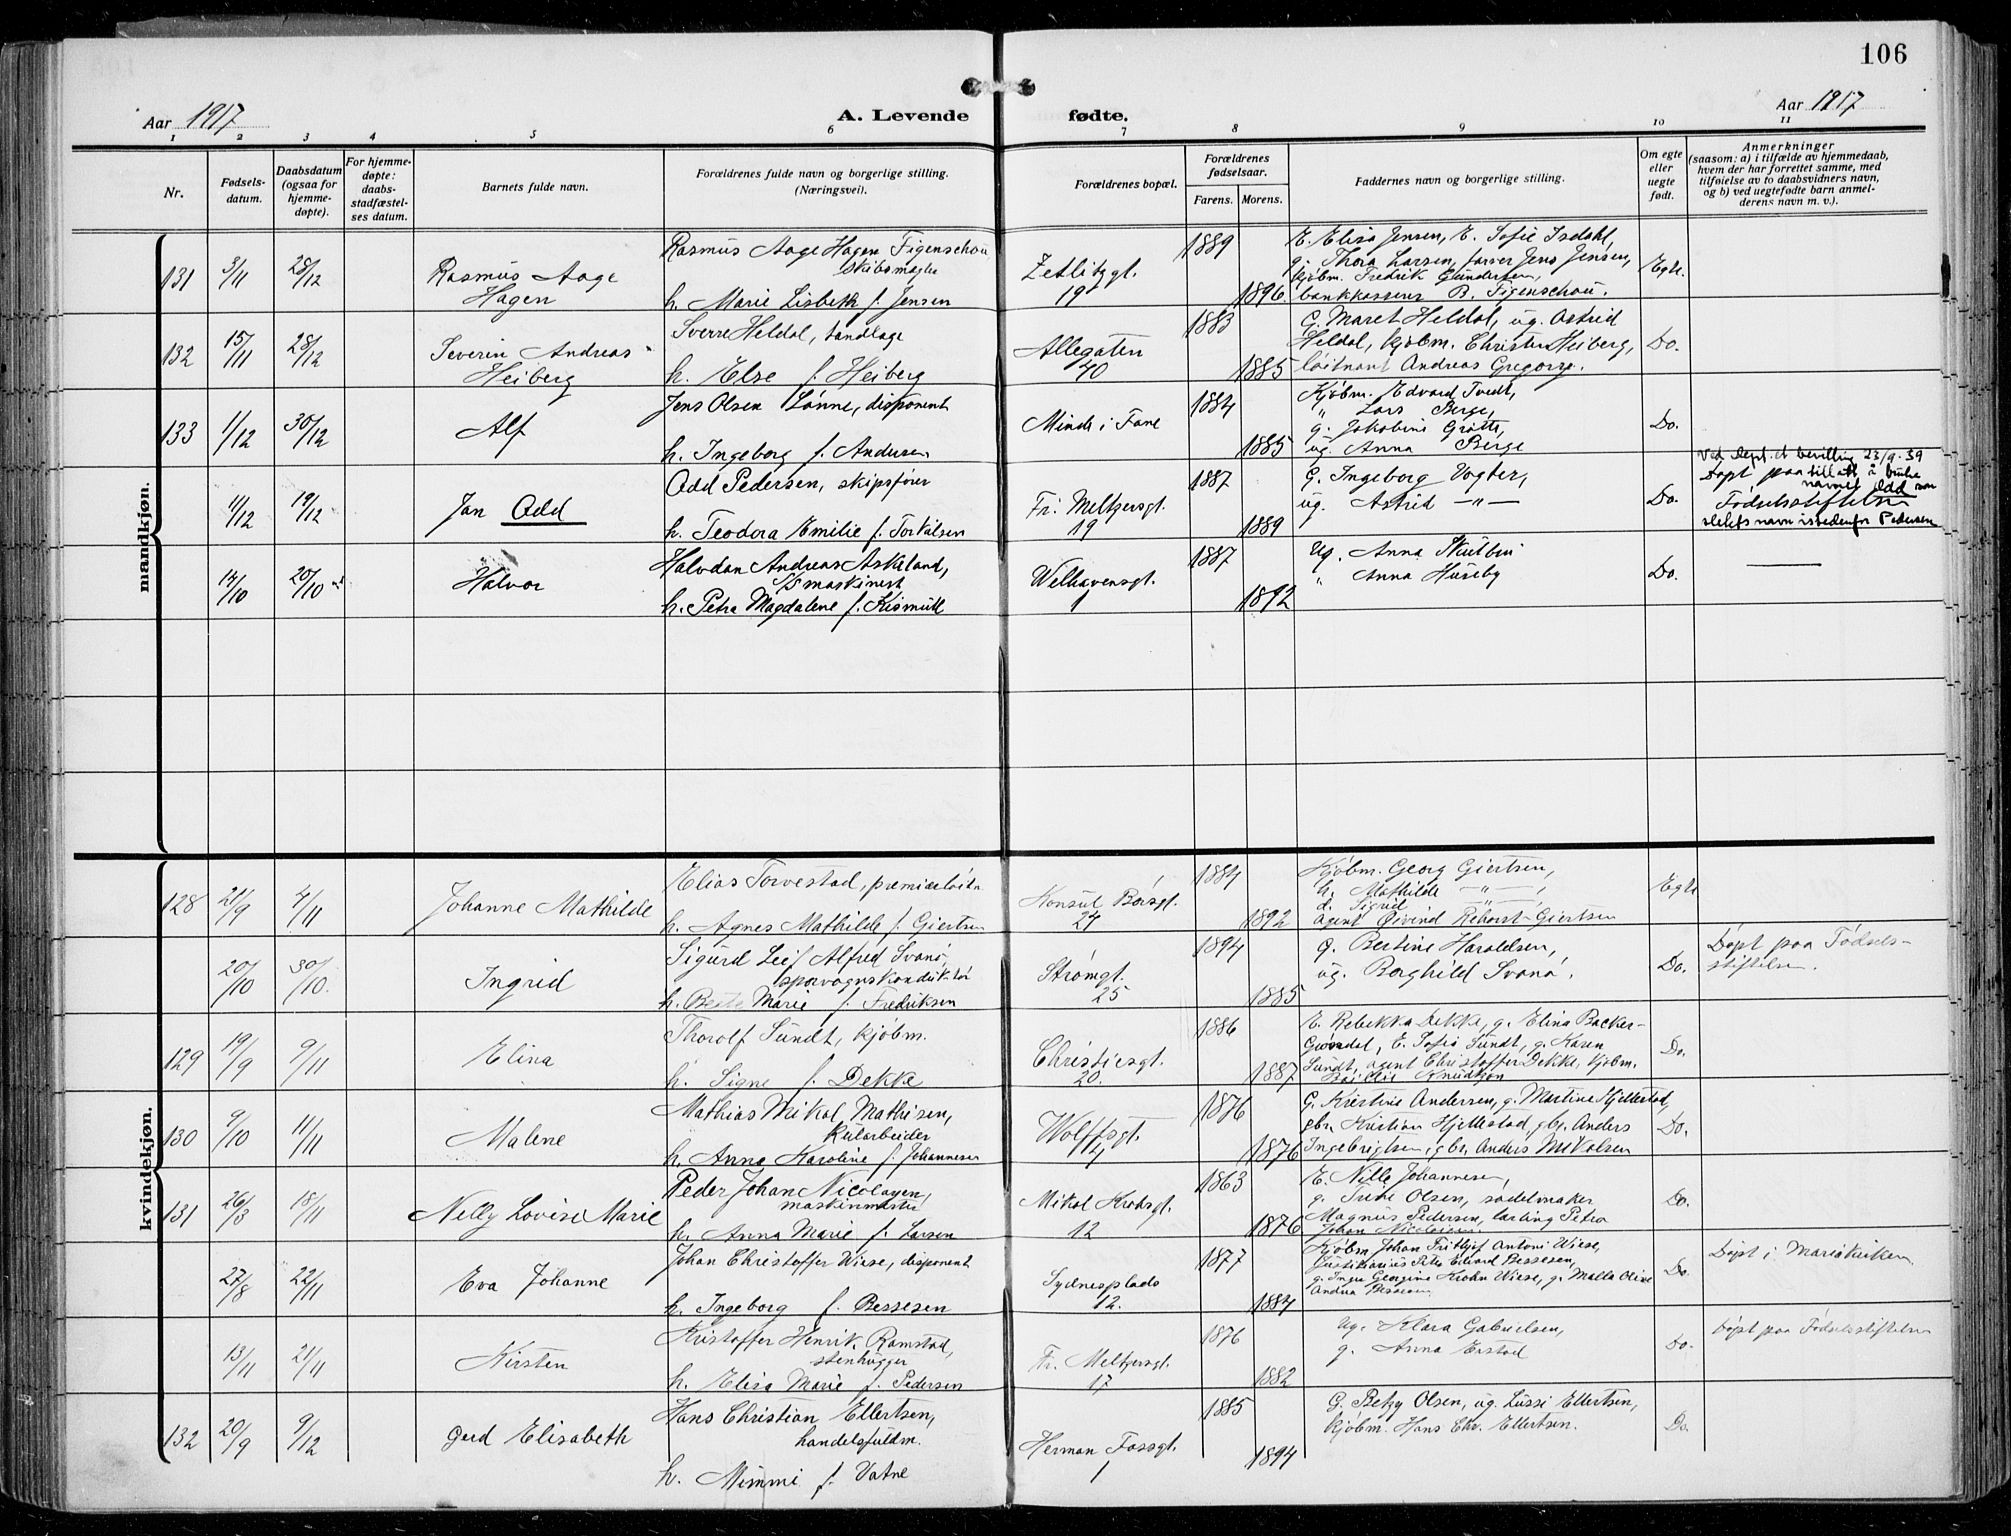 106
Aar 1917
A. Levende fødte.
Aar 1917
1 2 3 4 5 6 7 8 9 10 11
Nr.
Fødsels-
datum.
Daabsdatum
(ogsaa for
hjemme-
døpte).
For hjemme-
døpte:
daabs-
stadfæstel-
ses datum.
Barnets fulde navn.
Forældrenes fulde navn og borgerlige stilling.
(Næringsvei).
Forældrenes bopæl.
Forældrenes
fødselsaar.
Farens. Morens.
Faddernes navn og borgerlige stilling.
Om egte
eller
uegte
født.
Anmerkninger
(saasom: a) i tilfælde av hjemmedaab,
hvem der har forrettet samme, med
tilføielse av to daabsvidners navn,
og b) ved uegtefødte barn anmel-
derens navn m. v.).
mandkjøn.
131 3/11 28/12
Rasmus Aage
Hagen
Rasmus Aage Hagen Figenschou
skibsmægler
h. Marie Lisbeth f. Jensen
Zetlitzgt.
19
1889
1896
E. Elisa Jensen, E. Sofie Isdahl,
g. Thora Larsen, farver Jens Jensen,
kjøbm. Fredrik Gundersen,
bankkasserer B. Figenschou.
Egte.
132 15/11 28/12
Severin Andreas
Heiberg
Sverre Heldal, tandlæge
h. Else f. Heiberg
Allegaten
40
1883
1885
G. Maret Heldal, ug. Astrid
Heldal, kjøbm. Christen Heiberg,
løitnant Andreas
Do.
133 1/12 30/12
Alf
Jens Olsen Lønne, disponent
h. Ingeborg f. Andersen
Minde i Fane
1884
1885
Kjøbm. Edvard Tvedt,
" Lars Berge,
g. Jakobine
ug. Anna Berge
Do.
11/12 19/12
Jan Odd
Odd Pedersen, skipsfører
h. Teodora Emilie f. Torkilsen
Fr. Meltzersgt.
19
1887
1889
G. Ingeborg Vogter,
ug. Astrid —"—
Do.
Ved Dept. st bevilling 23/9-39
Døpt paa tillatt å bruke
navnet Odd som
Fødselsstiftelsen
slektsnavn istedenfor Pedersen
14/10 20/10
Halvor
Halvdan Andreas Askeland,
maskinist
h. Petra Magdalene f. Kismüll
Welhavensgt.
1
1887
1892
Ug. Anna
" Anna Huseby
Do.
kvindekjøn.
128 21/9 4/11
Johanne Mathilde
Elias Torvestad, premierløitn
h. Agnes Mathilde f. Giertsen
Konsul Børsgt.
24
1884
1892
Kjøbm. Georg Giertsen,
h. Mathilde —"—,
d. Sigrid —"—,
agent Øivind Rehorst-Giertsen
Egte
20/10 30/10.
Ingrid
Sigurd Leif Alfred Svanø,
sporvognskonduktør
h. Marie f. Fredriksen
Strømgt.
25
1894
1885
g. Bertine Haraldsen,
ug. Borghild Svanø.
Do.
Døpt paa Fødsels-
stiftelsen.
129 19/9 9/11
Elina
Thorolf Sundt, kjøbm.
h. Signe f. Dekke
Christiesgt.
20.
1886
1887
E. Rebekka Dekke, g. Elina Backer-
E. Sofie Sundt, g. Karen
Sundt, agent Christoffer Dekke, kjøbm.
Knudtzon
Do.
130 9/10 11/11
Malene
Mathias Mikal Mathisen,
kularbeider
h. Anna Karoline f. Johannesen
Wolffsgt.
4
1876
1876
G. Kristine Andersen, g. Martine Hjellestad,
gbr. Kristian Hjellestad, gbr. Anders
Ingebrigtsen, gbr. Anders Mikalsen
Do.
131 26/3 18/11
Nelly Lovise Marie
Peder Johan Nicolaysen,
maskinmester
h. Anna Marie f. Larsen
Mikal Krohsgt.
12
1863
1876
E. Nille Johannesen,
g. Olsen, sadelmaker
Magnus Pedersen, lærling Petra
Johan Nicolaisen
Do.
27/8 22/11
Eva Johanne
Johan Christoffer Wiese, disponent
h. Ingeborg f. Bessesen
Sydnesplads
12.
1877
1884
Kjøbm. Johan Frithjof Antoni Wiese,
Justitiarius Peter Edvard Bessesen,
g. Inga Georgine Krohn Wiese, g. Malla Olive
Andrea Bessesen
Do.
Døpt i Mariakirken
13/11 21/11
Kirsten
Kristoffer Henrik Ramstad,
stenhugger
h. Elisa Marie f. Pedersen
Fr. Meltzersgt.
17
1876
1882
Ug. Klara Gabrielsen,
g. Anna Erstad
Do.
Døpt paa Fødselsstiftelsen
132 20/9 9/12
Gerd Elisabeth
Hans Christian Ellertsen,
handelsfuldm.
h. Mimmi f. Vatne
Herman Fossgt.
1
1885
1894
G. Betzy Olsen, ug. Lussi Ellertsen,
kjøbm. Hans Chr. Ellertsen.
Do.